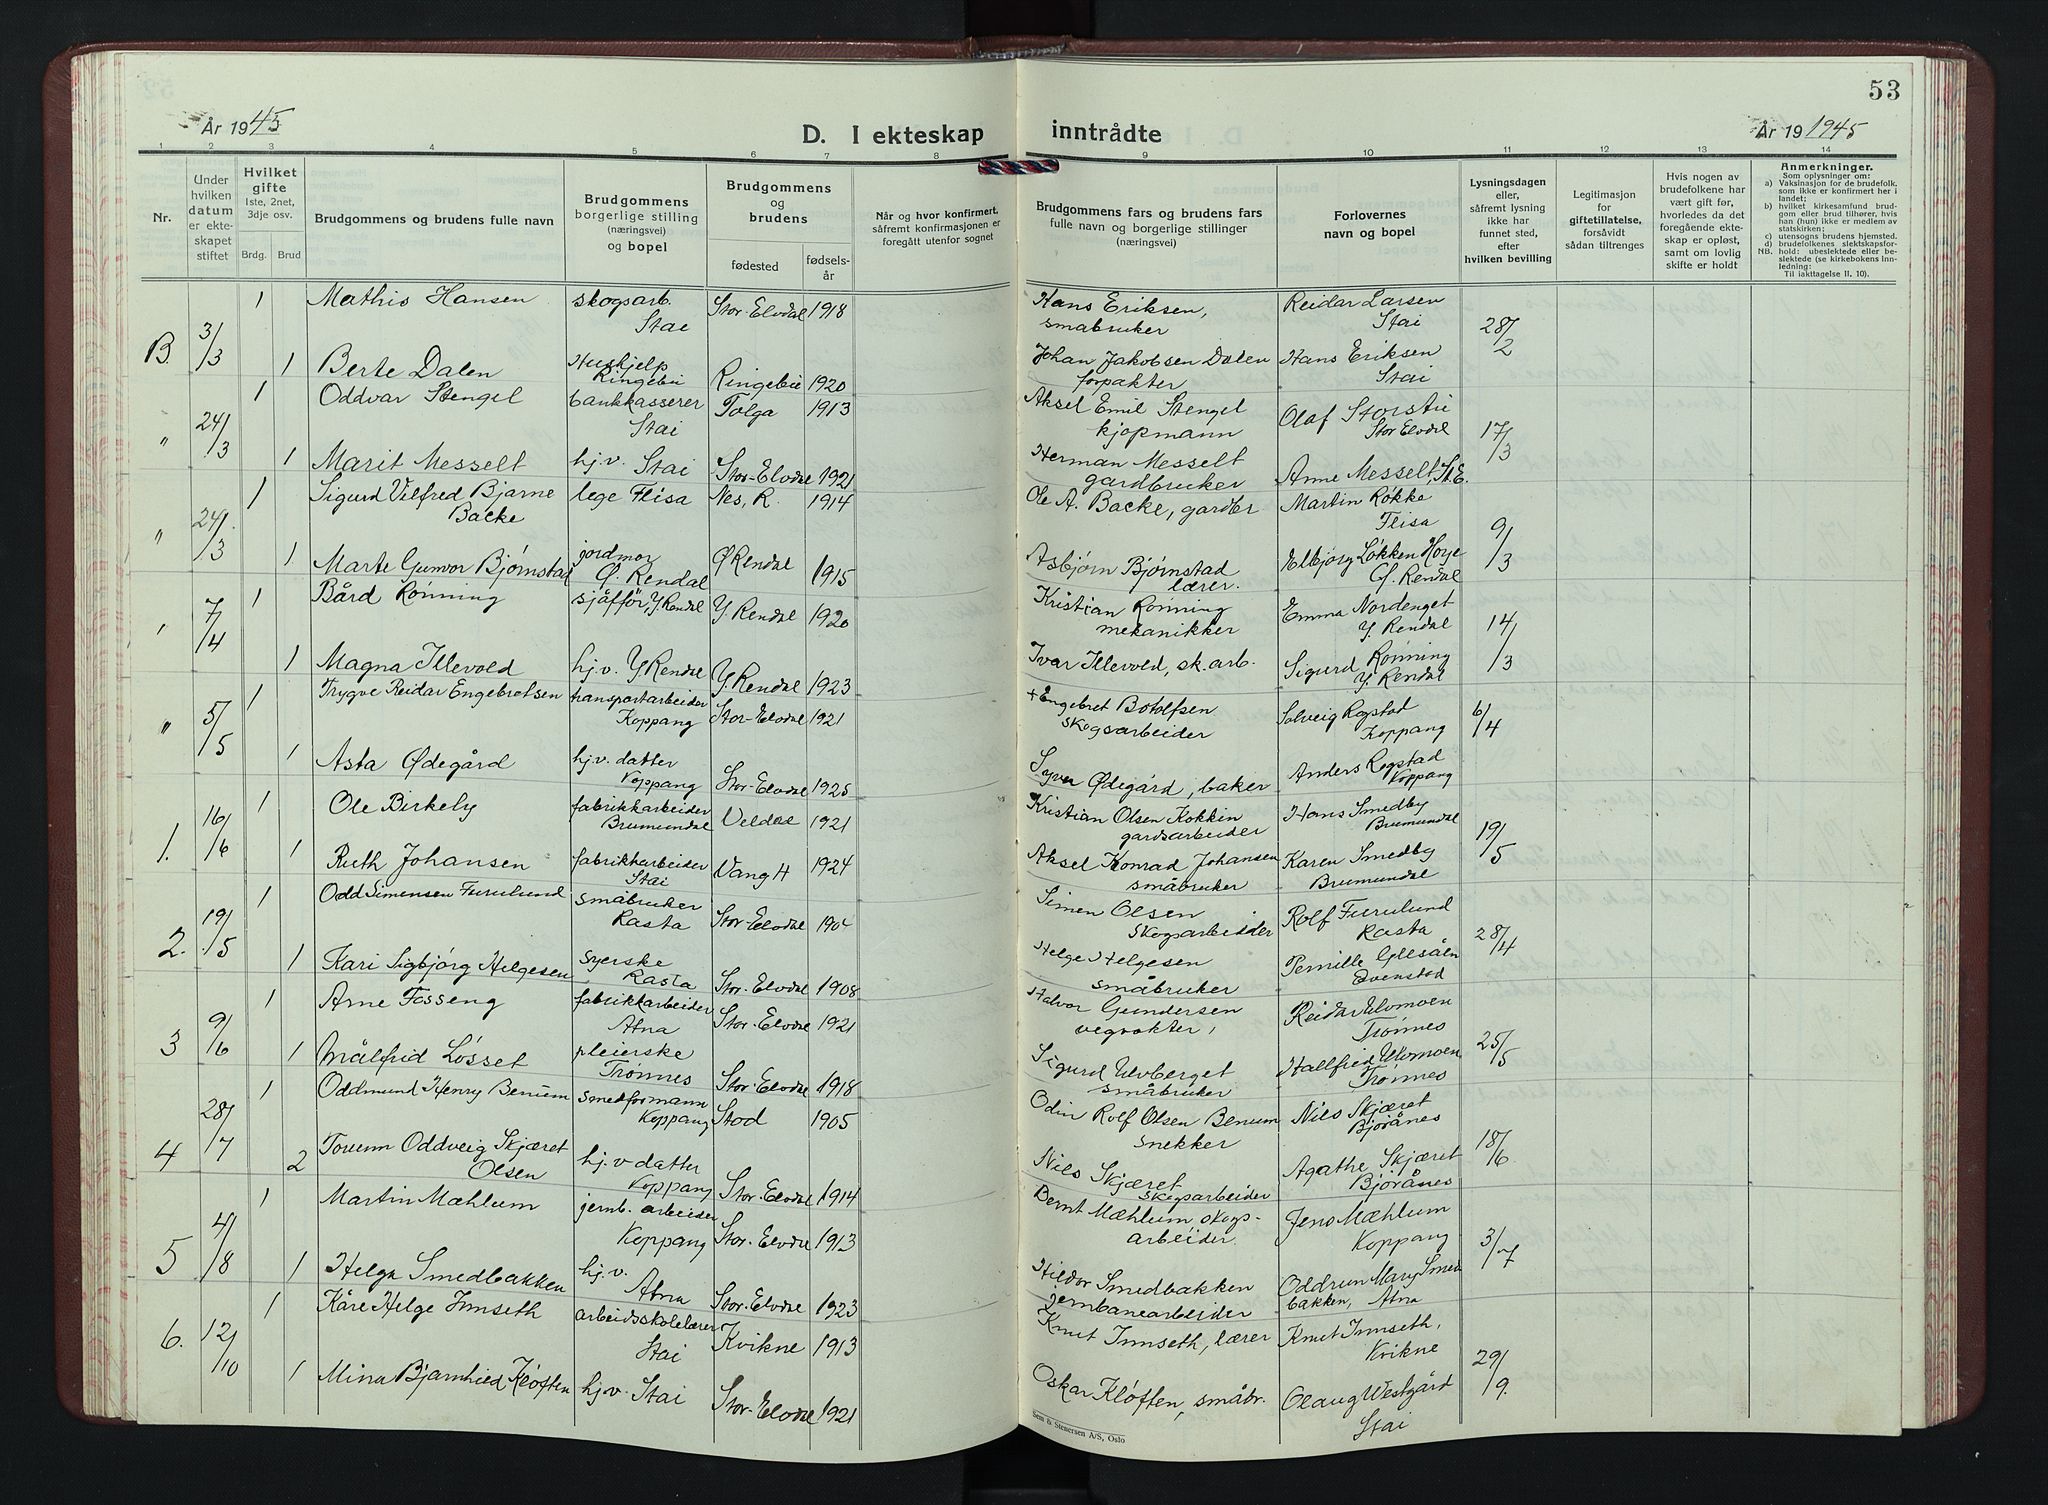 53
År 1945
D. I ekteskap inntrådte
År 19 1945
1 2 3 4 5 6 7 8 9 10 11 12 13 14
Nr.
Under
hvilken
datum
er ekte-
skapet
stiftet
Hvilket
gifte
1ste, 2net,
3dje osv.
Brdg. Brud
Brudgommens og brudens fulle navn
Brudgommens
borgerlige stilling
(næringsvei)
og bopel
Brudgommens
og
brudens
fødested
fødsels-
år
Når og hvor konfirmert,
såfremt konfirmasjonen er
foregått utenfor sognet
Brudgommens fars og brudens fars
fulle navn og borgerlige stillinger
(næringsvei)
Forlovernes
navn og bopel
Lysningsdagen
eller,
såfremt lysning
ikke har
funnet sted,
efter
hvilken bevilling
Legitimasjon
for
giftetillatelse,
forsåvidt
sådan tiltrenges
Hvis nogen av
brudefolkene har
vært gift før,
hvorledes da det
foregående ekte-
skap er opløst,
samt om lovlig
skifte er holdt
Anmerkninger.
Som oplysninger om:
a) Vaksinasjon for de brudefolk.
som ikke er konfirmert her i
landet;
b) hvilket kirkesamfund brud-
gom eller brud tilhører, hvis
han (hun) ikke er medlem av
statskirken;
c) utensogns brudens hjemsted.
d) brudefolkenes slektskapsfor-
NB. hold: ubeslektede eller be-
slektede (se kirkebokens inn-
ledning:
Til iakttagelse II. 10).
B. 3/3 1 Mathis Hansen skogsarb. Stai Stor-Elvdal 1918 Hans Eriksen, småbruker Reidar Larsen Stai 28/2
1 Berte Dalen Hushjelp Ringebu Ringebu 1920 Johan Jakobsen Dalen forpakter Hans Eriksen Stai
" 24/3 1 Oddvar Stengel bankkasserer Stai Tolga 1913 Aksel Emil Stengel kjøpmann Olaf Storstu Stor Elvdal 17/3
1 Marit Messelt hj.v. Stai Stor-Elvdal 1921 Herman Messelt gardbruker Anne Messelt, St.E.
" 24/3 1 Sigurd Vilfred Bjarne Backe lege Flisa Nes, R. 1914 Ole A. Backe, gardbr Martin Røkke Flisa 9/3
1 Marte Gunvor Bjørnstad jordmor Ø. Rendal Ø Rendal 1915 Asbjørn Bjørnstad lærer. Elbjørg Løkken Høye Ø. Rendal
" 7/4 1 Bård Rønning sjåffør, Y Rendal Y Rendal 1920 Kristian Rønning mekanikker Emma Nordenget Y. Rendal 14/3
1 Magna Illevold hj.v. Y Rendal Y. Rendal 1923 Ivar Illevold, sk.arb. Sigurd Rønning Y. Rendal
" 5/5 1 Trygve Reidar Engebretsen transportarbeider Koppang Stor-Elvdal 1921 + Engebret Botolfsen skogsarbeider Solveig Rogstad Koppang 6/4
1 Asta Ødegård hj.v. datter Koppang Stor-Elvdal 1925 Syver Ødegård, baker Anders Rogstad Koppang
1. 16/6 1 Ole Birkely fabrikkarbeider Brumundal Veldre 1921 Kristian Olsen Kokkin gardsarbeider Hans Smedby Brumundal 19/5
1 Ruth Johansen fabrikkarbeider Stai Vang H 1924 Aksel Konrad Johansen småbruker Karen Smedby Brumundal
2. 19/5 1 Odd Simensen Furulund småbruker Rasta Stor-Elvdal 1904 Simen Olsen skogsarbeider Rolf Furulund Rasta 28/4
1 Kari Sigbjørg Helgesen syerske Rasta Stor-Elvdal 1908 Helge Helgesen småbruker Pernille Ullsåen Evenstad
3 9/6 1 Arne Fosseng fabrikkarbeider Atna Stor-Elvdal 1921 Halvor Gundersen vegvokter, Reidar Ulvmoen Trønnes 25/5
1 Målfrid Løsset pleierske Trønnes Stor-Elvdal 1918 Sigurd Ulvberget småbruker Hallfrid Ulvmoen Trønnes
4 28/7 1 Oddmund Henry Benum smedformann Koppang Stod 1905 Odin Rolf Olsen Benum snekker Nils Skjæret Bjørånes 18/6
2 Torunn Oddveig Skjæret Olsen hj.v datter Koppang Stor-Elvdal 1914 Nils Skjæret skogsarbeider Agathe Skjæret Bjørånes
5 4/8 1 Martin Mæhlum jernb. arbeider Koppang Stor-Elvdal 1913 Bernt Mæhlum, skogs-arbeider Jens Mæhlum Koppang 3/7
1 Helga Smedbakken hj.v. Atna Stor-Elvdal 1923 Hildor Smedbakken jernbanearbeider Oddrun Mary Smedbakken, Atna
6. 12/10 1 Kåre Helge Innseth arbeidsskolelærer Stai Kvikne 1913 Knut Innseth, lærer Knut Innseth, Kvikne 29/9
1 Mina Bjarnhild Kløften hj.v. Stai Stor-Elvdal 1921 Oskar Kløften, småbr. Olaug Westgård Stai
Sem & Stenersen A/S, Oslo